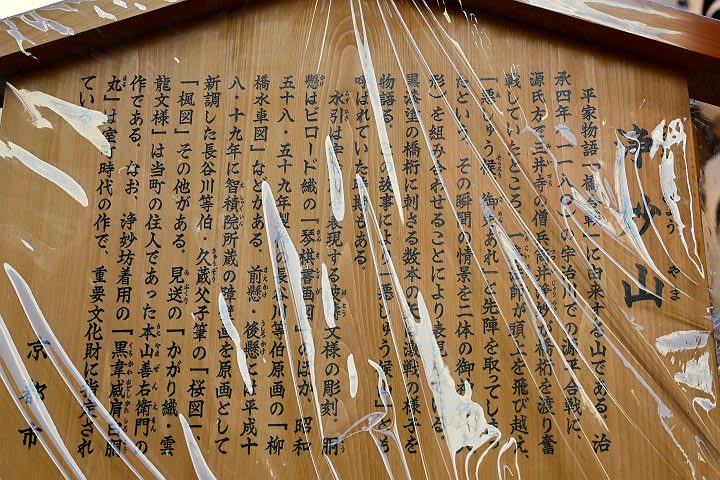 浄妙山
平家物語「橋合戦」に由来する山である。治
承四年(一一八〇)の宇治川での源平合戦に、
源氏方で三井寺の僧兵筒井浄妙が橋桁を渡り奮
戦していたところ、一来法師が頭上を飛び越え、
「悪しゅう候、御免あれ」と先陣を取ってしまっ
たという。その瞬間の情景を二体の御
形)を組み合わせることにより表現している。
黒漆塗の橋桁に刺さる数本の矢も激戦の様子を
物語る。この故事により「悪しゅう候山」とも
呼ばれていた時期もある。
水引は宇 表現する波濤文様の彫刻。胴
懸はビロード織の「琴棋書画図」のほか、昭和
五十八・五十九年製作の長谷川等伯原画の「柳
橋水車図」などがある。前懸・後懸には平成十
八・十九年に智積院所蔵の障壁画を原画として
新調した長谷川等伯・久蔵父子筆の「桜図」、
「楓図」その他がある。見送の「かがり織・雲
龍文様」は当町の住人であった本山善右衛門の
作である。なお、浄妙坊着用の「黒韋威肩白胴
丸」は室町時代の作で、重要文化財に指定され
てい
京都市